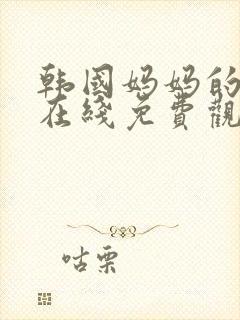 韩国妈妈的
在线免費觀
咕栗